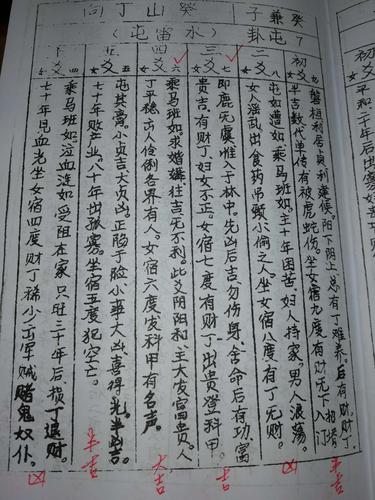 癸山丁向
癸兼子
7屯卦（水雷屯）
初爻女九
磐桓利居贞利建侯。阳下阴上总有丁难养。后有财。财丁
半吉数代单传有被虎蛇伤。坐女宿九度有财无下稍消
凶
二爻女八
屯如邅如乘马班如。主十年困苦。妇人持家。男人浪荡。
女人淫乱出食药吊颈小偷之人。坐女宿八度有丁无财。
凶
三爻女七
即鹿无虞惟入于林中。先凶后吉勿伤身。舍命后有功。富
贵吉。有财丁妇女不正。女宿七度有财丁出贵登科甲。
吉
四爻女六
乘马班如求婚媾。往吉无不利。此爻阴阳和。主大发富四贵。人
丁平稳出人伶俐各界有人。女宿六度发科甲有名声。
大吉
五爻女五
屯其膏。小贞吉。大贞凶。正陷于险小事大凶喜得光。半凶吉。
七十年败后业。八十年出孤寡。坐女宿五度犯空亡。
半吉
六爻女四
乘马班如泣血涟如受阻在家只旺三十年后损丁退财。
七十年见血光坐女宿四度财丁稀少。出军贼赌鬼奴仆。